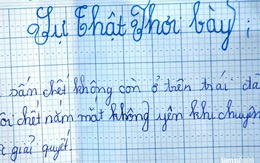 Sự Thật Phơi bày ;
sẵn chết không còn ở trên trái đấ
ôi chết nắm mắt không yên khi chuyện
giải quyết.